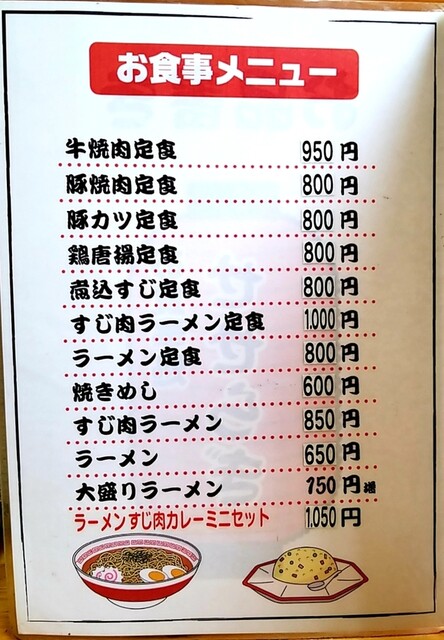 お食事メニュー
牛焼肉定食 950円
豚焼肉定食 800円
豚カツ定食 800円
鶏唐揚定食 800円
煮込すじ定食 800円
すじ肉ラーメン定食 1.000円
ラーメン定食 800円
焼きめし 600円
すじ肉ラーメン 850円
ラーメン 650円
大盛りラーメン 750円
ラーメンすじ肉カレーミニセット 1.050円